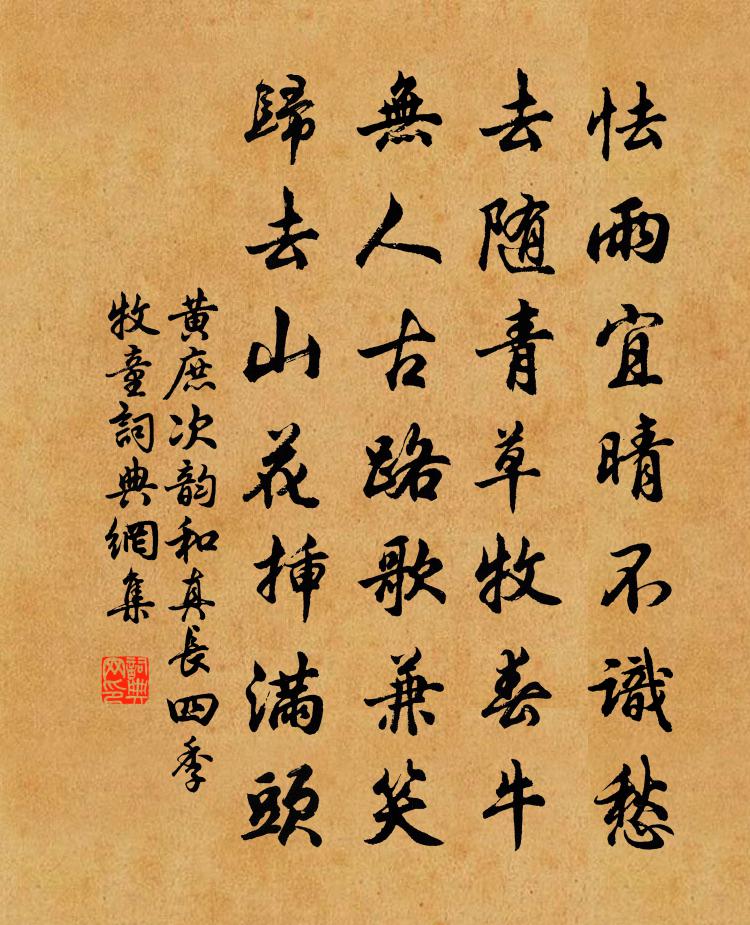 怯雨宜晴不識愁
去随青草牧春牛
無人古路歌兼笑
歸去山花插滿頭
黄庶次韵和真長四季
牧童詞典網集
詞典
网印